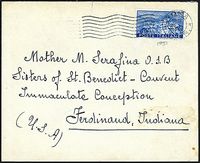 POSTE ITALIANE
Mother M. Serafina O.S.B
Sisters of St. Benedict - Convent
Immaculate Conception
Ferdinand, Indiana
(U.S.A)